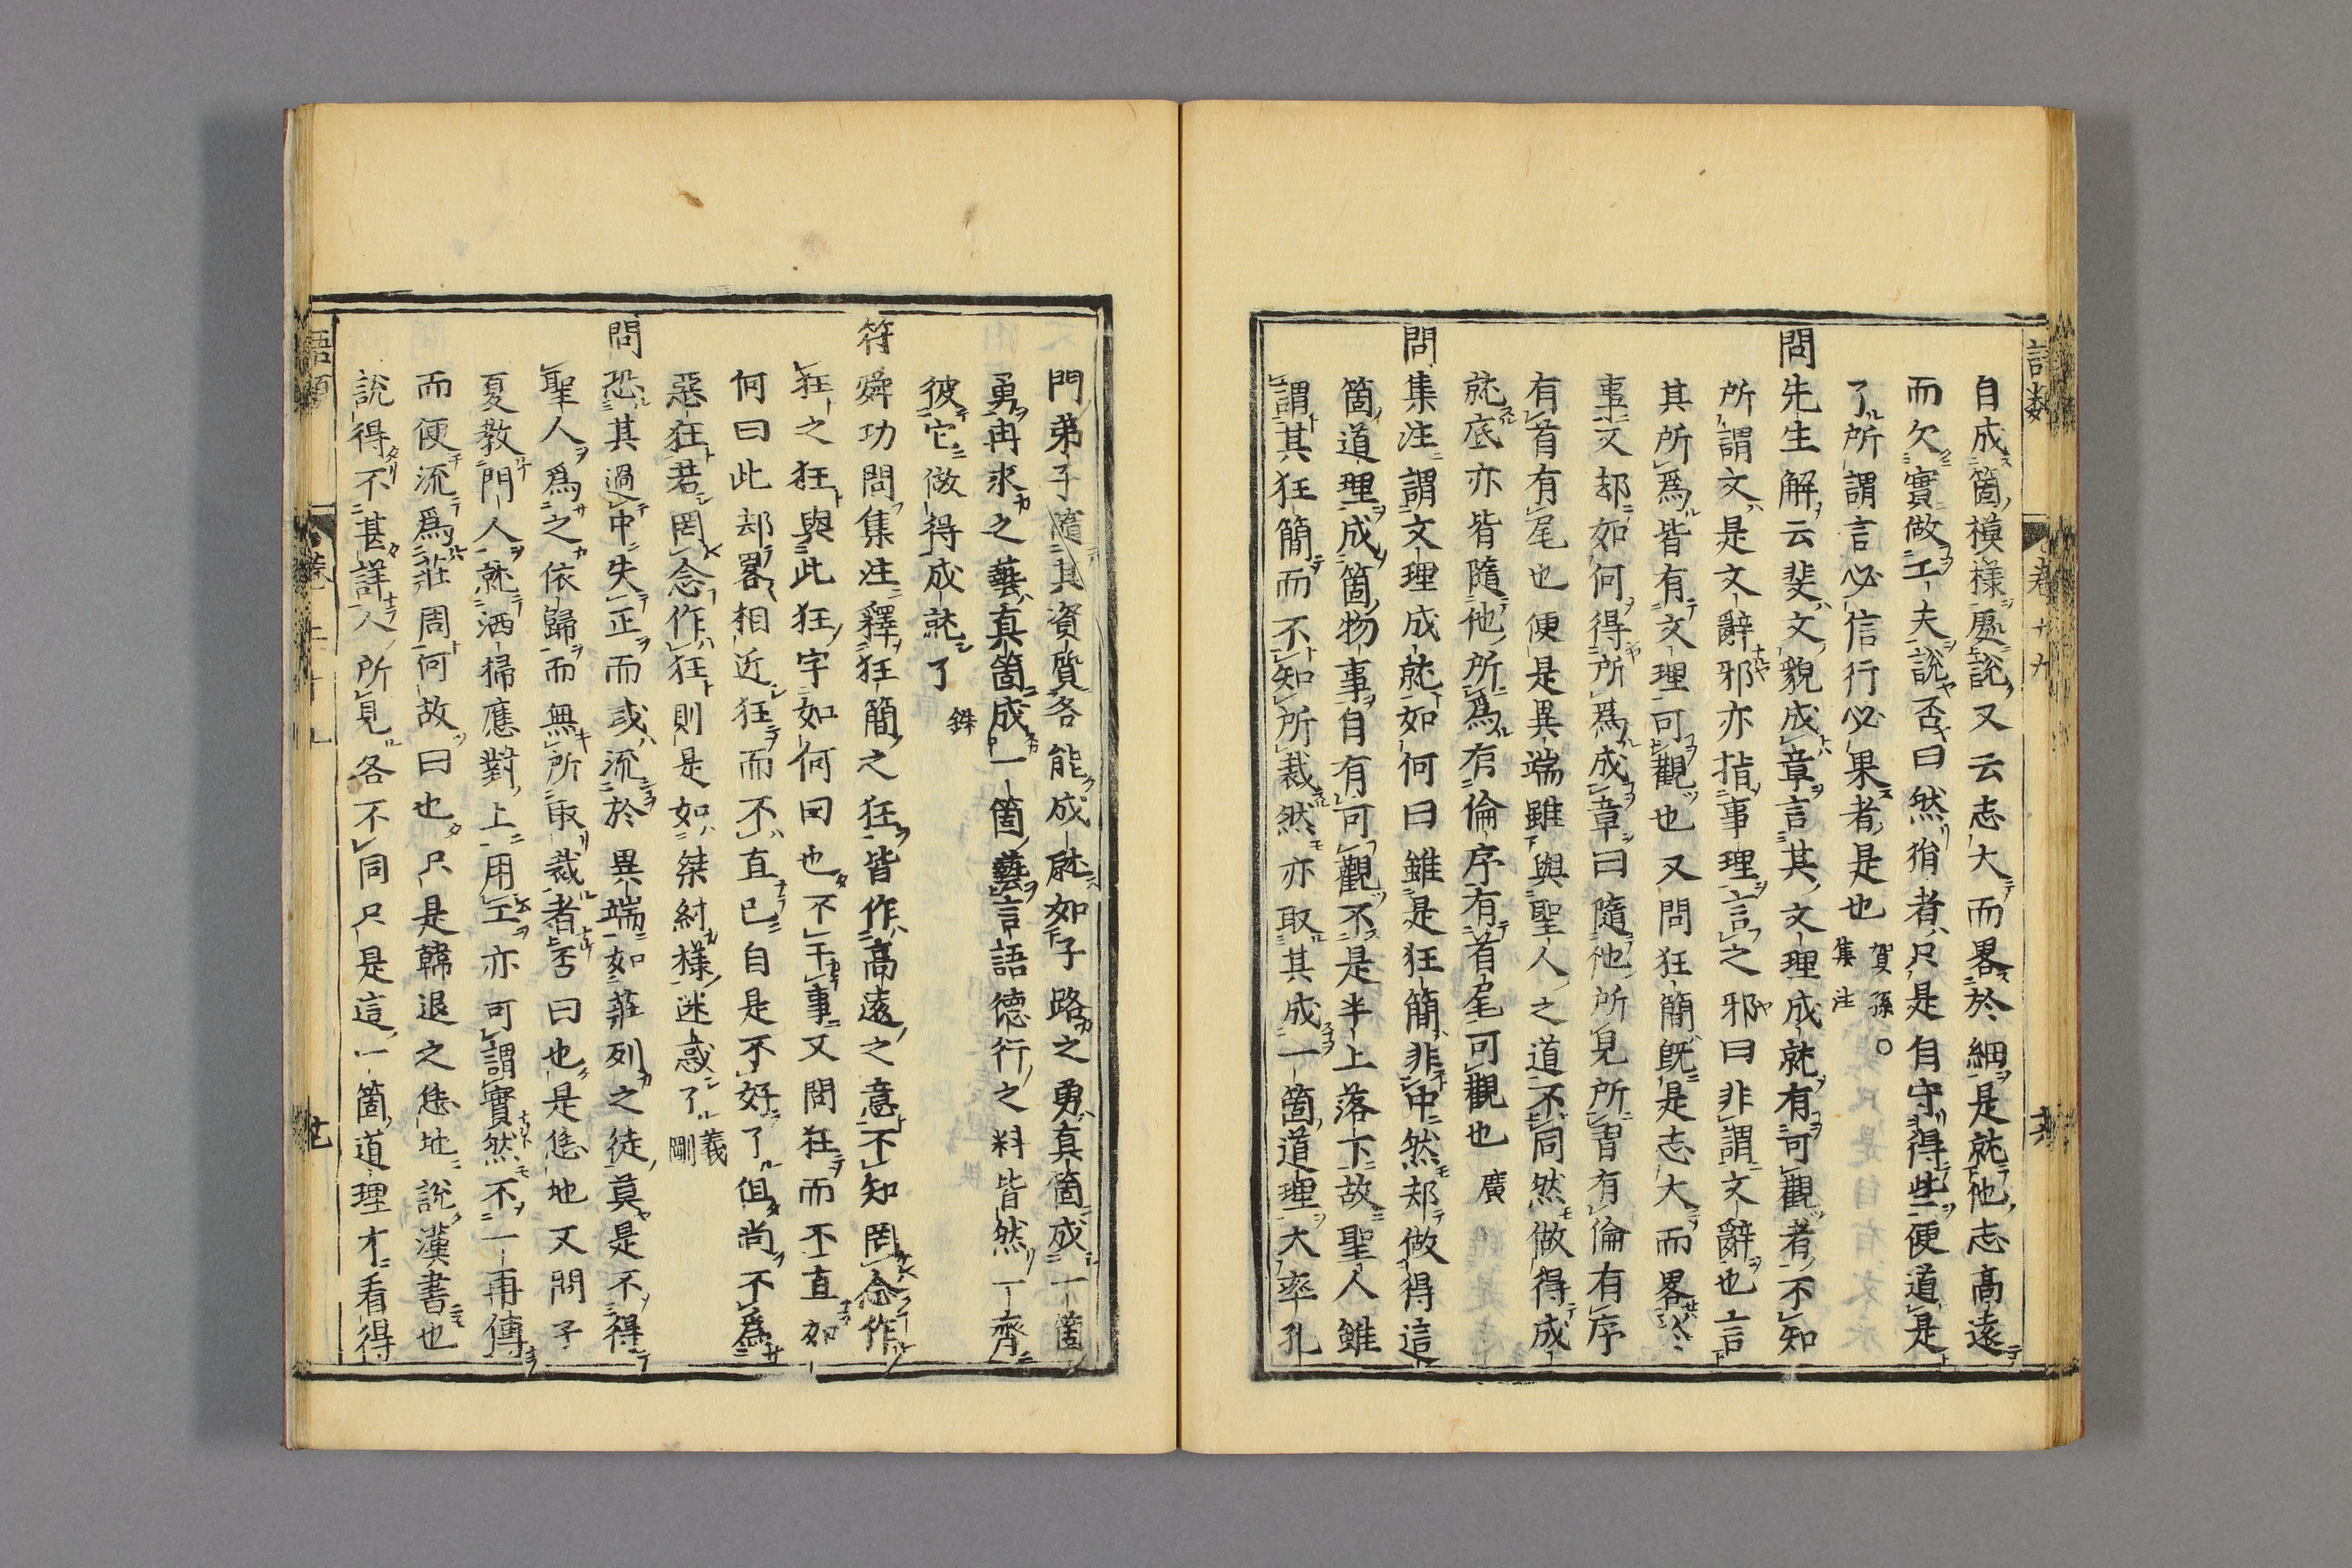 自成箇模樣處說又云志大而畧於細是就他志高遠
而欠實做工夫說否曰然狷者只是自守得些便道是
了所謂言必信行必果者是也 賀孫 集注 ○
問先生解云斐文貌成章言其文理成就有可觀者不知
所謂文是文辭邪亦指事理言之邪曰非謂文辭也言
其所爲皆有文理可觀也又問狂簡旣是志大而畧於
事文却如何得所爲成章曰隨他所見所習有倫有序
有首有尾也便是異端雖與聖人之道不同然做得成
就底亦皆隨他所爲有倫序有首尾可觀也 廣
問集注謂文理成就如何曰雖是狂簡非中然却做得這
箇道理成箇物事自有可觀不是半上落下故聖人雖
謂其狂簡而不知所裁然亦取其成一箇道理大率孔
語類 卷二十九 廿
門弟子隨其資質各能成就如子路之勇真箇成一箇
勇冉求之藝真箇成一箇藝言語德行之科皆然一齊
彼它做得成就了 銖
符舜功問集注釋狂簡之狂皆作高遠之意不知罔念作
狂之狂與此狂字如何曰也不干事又問狂而不直如
何曰此却畧相近狂而不直已自是不好了但尚不爲
惡在若罔念作狂則是如桀紂樣迷惑了 義剛
問恐其過中失正而或流於異端如莊列之徒莫是不得
聖人爲之依歸而無所取裁者否曰也是恁地又問子
夏教門人就洒掃應對上用工亦可謂實然不一再傳
而便流爲莊周何故曰也只是韓退之恁地說漢書也
說得不甚詳人所見各不同只是這一箇道理才看得